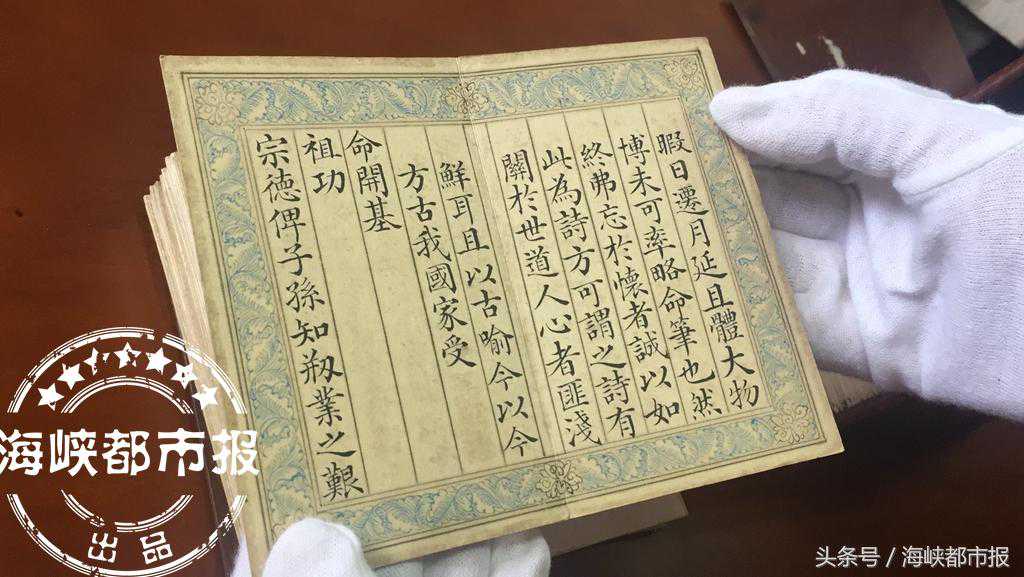 暇日遷月延且體大物
博未可率略命筆也然
終弗忘於懷者誠以如
此為詩方可謂之詩有
關於世道人心者匪淺
鮮耳且以古喻今以今
方古我國家受
命開基
祖功
宗德俾子孫知剏業之艱
海峡都市报
出品
头条号 / 海峡都市报